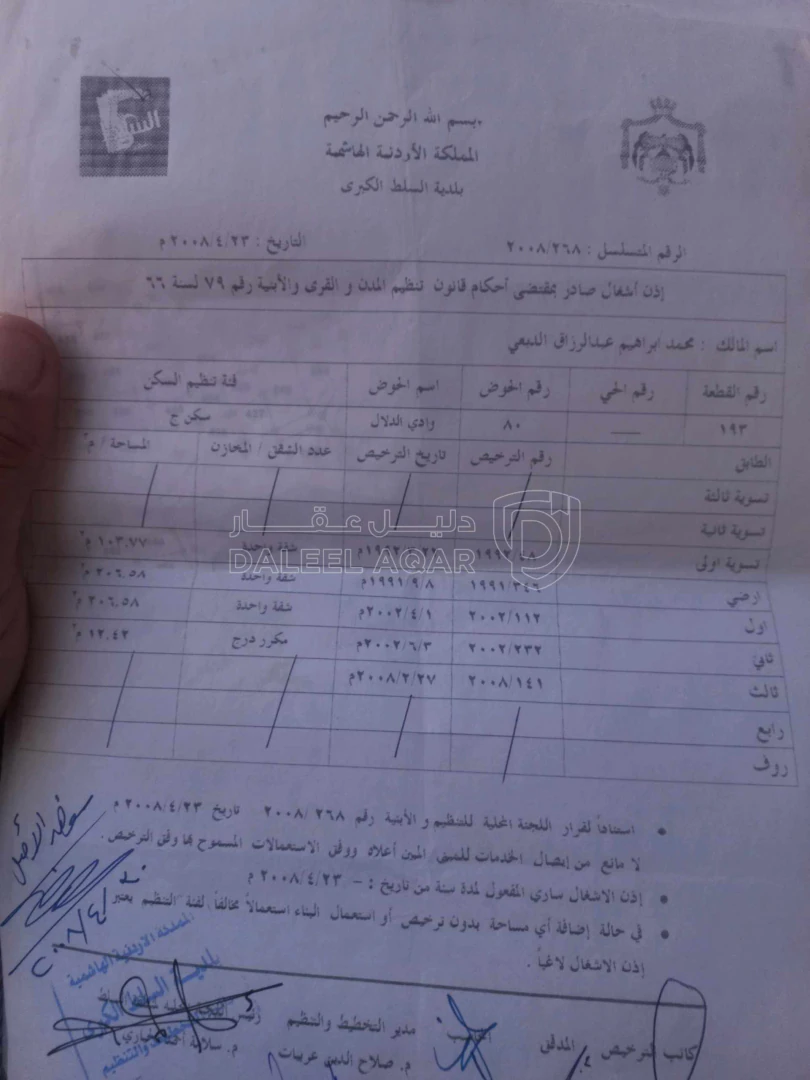 السلط
بسم الله الرحمن الرحيم
المملكة الأردنية الهاشمية
بلدية السلط الكبرى
الرقم المتسلسل : ٢٠٠٨/٢٦٨ التاريخ : ٢٠٠٨/٤/٢٣م
إذن أشغال صادر بمقتضى أحكام قانون تنظيم المدن و القرى والأبنية رقم ٧٩ لسنة ٦٦
اسم المالك : محمد ابراهيم عبدالرزاق الدبعي
رقم القطعة رقم الحي رقم الحوض اسم الحوض فئة تنظيم السكن
١٩٣ ـــــ ٨٠ وادي الدلال سكن ج
الطابق رقم الترخيص تاريخ الترخيص عدد الشقق / المخازن المساحة / م٢
تسوية ثالثة
تسوية ثانية
تسوية اولى شقة واحدة ١٠٣.٧٧ م٢
ارضي ١٩٩١/٩/٨م شقة واحدة ٢٠٦.٥٨ م٢
اول ٢٠٠٢/١١٢ ٢٠٠٢/٤/١م شقة واحدة ٢٠٦.٥٨ م٢
ثاني ٢٠٠٢/٢٣٢ ٢٠٠٢/٦/٣م مكرر درج ١٢.٤٢ م٢
ثالث ٢٠٠٨/١٤١ ٢٠٠٨/٢/٢٧م
رابع
روف
دليل عقار
DALEEL AQAR
• استناداً لقرار اللجنة المحلية للتنظيم و الأبنية رقم ٢٦٨ /٢٠٠٨ تاريخ ٢٠٠٨/٤/٢٣ م
لا مانع من إيصال الخدمات للمبنى المبين أعلاه ووفق الاستعمالات المسموح بها وفق الترخيص .
• إذن الاشغال ساري المفعول لمدة سنة من تاريخ : – ٢٠٠٨/٤/٢٣ م
• في حالة إضافة أي مساحة بدون ترخيص أو استعمال البناء استعمالاً مخالفاً لفئة التنظيم يعتبر
إذن الاشغال لاغياً .
المملكة الاردنية الهاشمية
كاتب الترخيص المدقق مدير التخطيط والتنظيم رئيس
م. صلاح الدين عربيات
والتنظيم